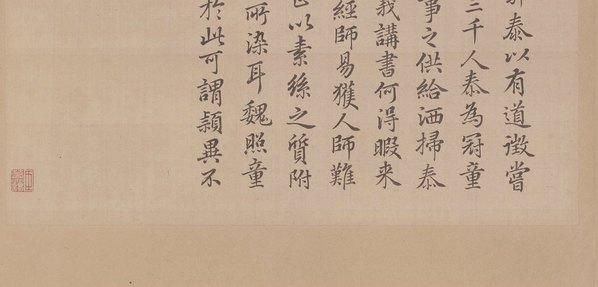 泰以有道徵嘗
三千人泰為冠童
事之供給洒掃泰
講書何得暇来
經師易獲人師難
以素絲之質附
所染耳魏照童
於此可謂頴異不